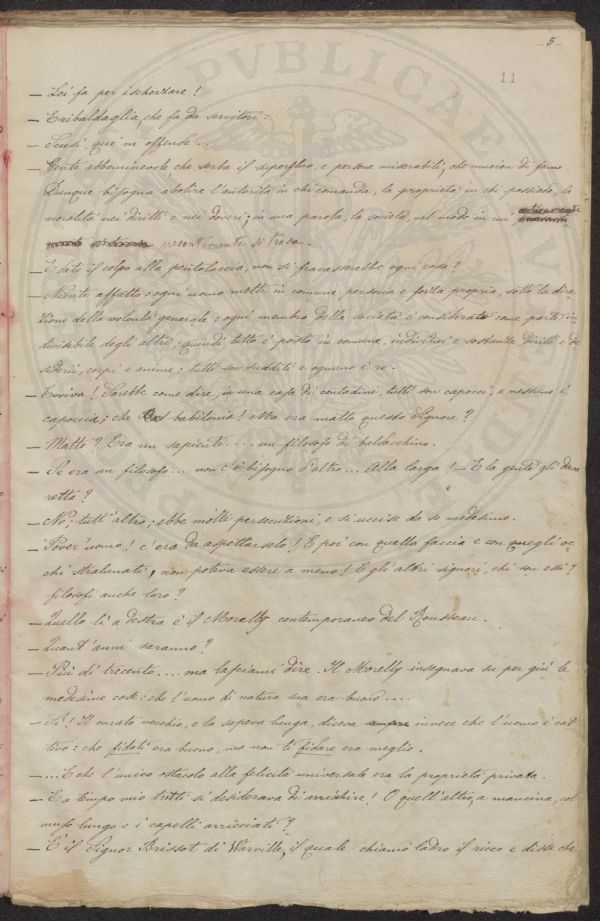 5
11
— Lei fa per ischerzare!
— Eribaldaglia, che fa da servitore:
— Scusi, qui m'offende...
— Gente abbominevole che serba il superfluo, e persone miserabili, che muoion di fame.
Dunque bisogna abolire l'autorità in chi comanda, la proprietà in chi possiede, la
moralità nei diritti e nei doveri; in una parola, la società, nel modo in cui
presentemente si trova.
— E dato il colpo alla pentolaccia, non si fracasserebbe ogni cosa?
— Niente affatto: ogni uomo mette in comune, persona e forza propria, sotto la dire-
zione della volontà generale: ogni membro della società è considerato come parte in-
divisibile degli altri; quindi tutto è posto in comune, individui e sostanze, diritti e de-
siderii, corpi e anime: tutti son sudditi e ognuno è re.
— Evviva! Sarebbe come dire, in una casa di contadini, tutti son capocci, e nessuno è
capoccia; che babilonia! Ma era matto questo Signore?
— Matto? Era un sapiente.... un filosofo di baldacchino.
— Se era un filosofo... non c'è bisogno d'altro... Alla larga! — E la gente gli dava
retta?
— No; tutt'altro; ebbe molte persecuzioni, e si uccise da se medesimo.
— Pover'uomo! c'era da aspettarselo! E poi con quella faccia e con quegli oc-
chi stralunati, non poteva essere a meno! E gli altri signori, chi son essi?
filosofi anche loro?
— Quello lì a destra è il Morelly contemporaneo del Rousseau.
— Quant'anni saranno?
— Più di trecento.... ma lasciami dire. Il Morelly insegnava su per giù le
medesime cose: che l'uomo di natura sua era buono....
— Sì! Il curato vecchio, e la sapeva lunga, diceva invece che l'uomo è cat-
tivo: che fidati era buono, ma non ti fidare era meglio.
— ...E che l'unico ostacolo alla felicità universale era la proprietà privata.
— E a tempo mio tutti si desiderava di arricchire! O quell'altro, a mancina, col
muso lungo e i capelli arricciati?
— È il Signor Brissot di Warville, il quale chiamò ladro il ricco e disse che